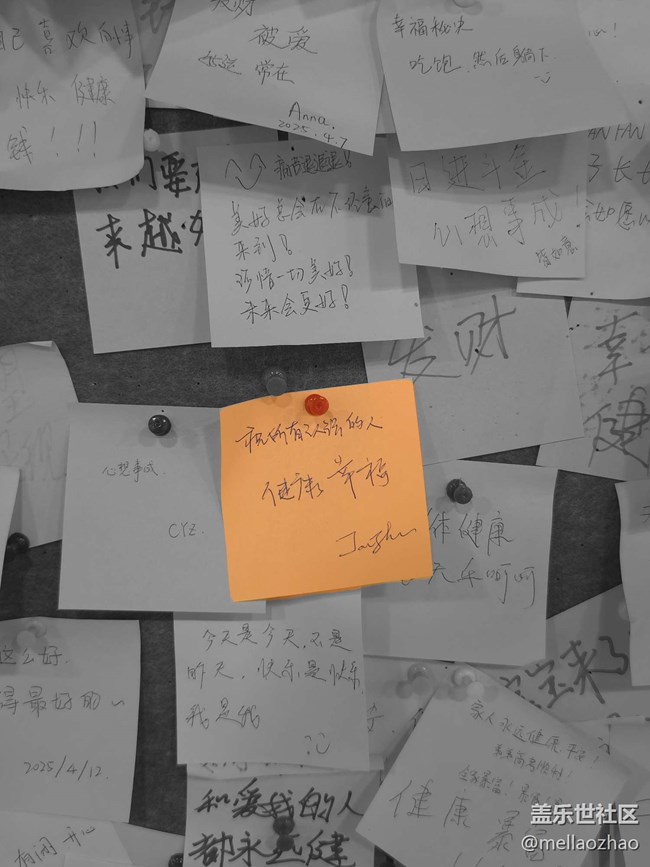 己喜欢的事
快乐 健康
钱！！！
发财
被爱
好运 常在
Anna.
2025.4.7
幸福秘决
吃饱，然后躺下
我们要
来越好
美好总会在不经意间
来到！
珍惜一切美好！
未来会更好！
日进斗金
心想事成！
皆如意
子长
会如愿
发财
幸
健
心想事成.
CYZ.
祝所有人
的人
健康 幸福
体健康
天乐呵呵
这么好.
得最好的~
2025/4/12.
今天是今天,不是
昨天, 快乐是快乐
我是我
宝来了
家人永远健康,平安,
健康
暴富
和爱我的人
都永远健
开心
盖乐世社区
@mellaozhao